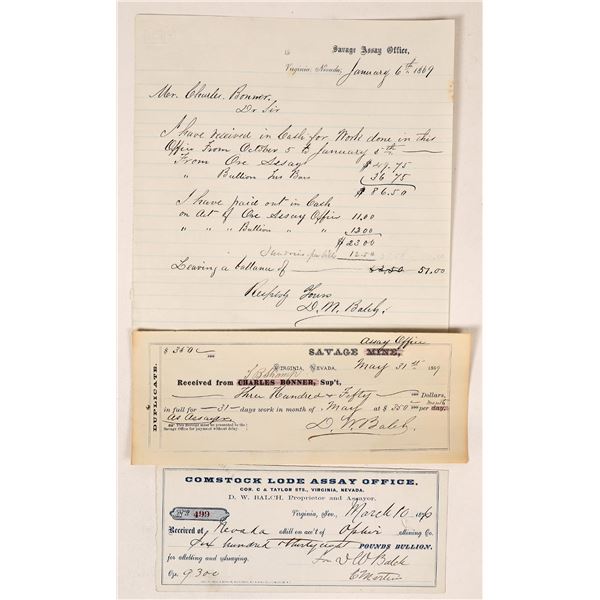 Savage Assay Office,
Virginia, Nevada, January 6th 1869
Mr. Charles Bonner,
Dr Sir
I have received in Cash for Work done in this
Office From October 5 to January 5th
From Ore Assays $49.75
" Bullion Fus Bars 36 75
$86.50
I have paid out in Cash
on Act of Ore Assay Office 11.00
" " " Bullion " " 12.00
$23.00
Sundries per bill 12.50
Leaving a ballance of 63.50 51.00
Respctly Yours
D. M. Balch,
Assay Office
$350 SAVAGE MINE,
Virginia, Nevada, May 31st 1869
DUPLICATE.
Received from CHARLES BONNER, Sup't,
Three Hundred & Fifty Dollars,
in full for 31 days work in month of May at $350 per day. Month
As Assayer
This Receipt must be presented to the
Savage Office for payment without delay.
D. W. Balch,
COMSTOCK LODE ASSAY OFFICE,
COR. C & TAYLOR STS., VIRGINIA, NEVADA.
D. W. BALCH, Proprietor and Assayer.
No 499 Virginia, Nev. March 10 1870
Received of Nevada Mill on acc't of Ophir Mining Co.
Six hundred & thirty eight POUNDS BULLION.
for melting and assaying. For D W Balch
Ozs. 9300 C Martin